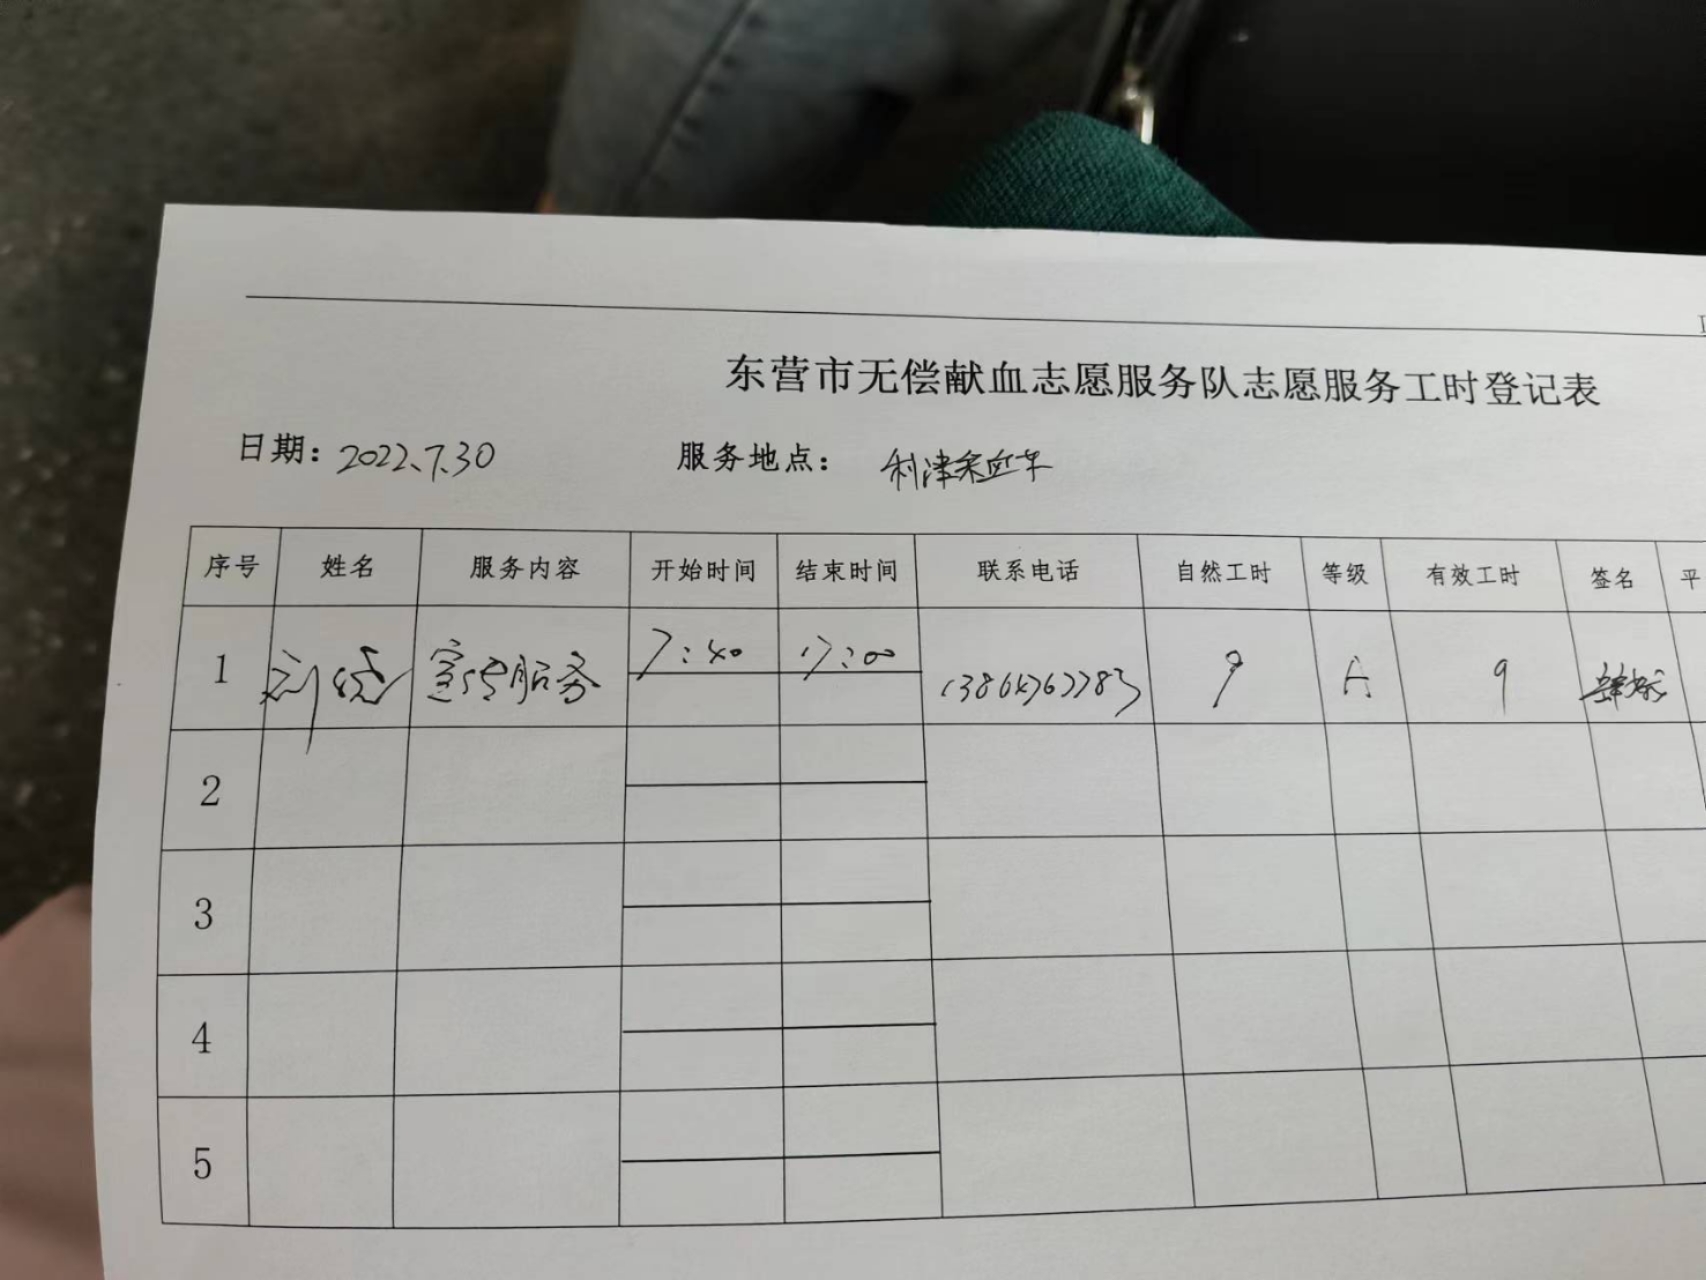 东营市无偿献血志愿服务队志愿服务工时登记表
日期：2022.7.30 服务地点：利津采血车
序号 姓名 服务内容 开始时间 结束时间 联系电话 自然工时 等级 有效工时 签名 平
1 刘 宣传服务 7:40 17:00 13864767783 9 A 9
2
3
4
5